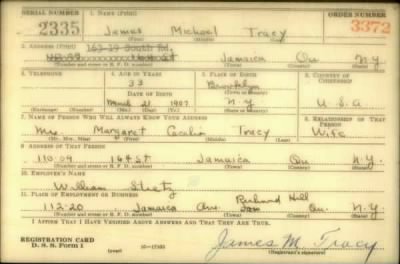 SERIAL NUMBER 1. NAME (Print) ORDER NUMBER
2335 James Michael Tracy 3372
(First) (Middle) (Last)
2. ADDRESS (Print) 163-19 South Rd.
164 St Jamaica Qu N.Y
(Number and street or R. F. D. number) (Town) (County) (State)
3. TELEPHONE 4. AGE IN YEARS 5. PLACE OF BIRTH 6. COUNTRY OF CITIZENSHIP
33 Brooklyn
DATE OF BIRTH (Town or county)
March 21 1907 N.Y U.S.A
(Exchange) (Number) (Mo.) (Day) (Yr.) (State or country)
7. NAME OF PERSON WHO WILL ALWAYS KNOW YOUR ADDRESS 8. RELATIONSHIP OF THAT PERSON
Mrs. Margaret Cecilia Tracy Wife
(Mr., Mrs., Miss) (First) (Middle) (Last)
9. ADDRESS OF THAT PERSON
110-09 164 St Jamaica Qu N.Y.
(Number and street or R. F. D. number) (Town) (County) (State)
10. EMPLOYER'S NAME
William
11. PLACE OF EMPLOYMENT OR BUSINESS
112-20 Jamaica Ave. Richmond Hill Qu. N.Y.
(Number and street or R. F. D. number) (Town) (County) (State)
I AFFIRM THAT I HAVE VERIFIED ABOVE ANSWERS AND THAT THEY ARE TRUE.
REGISTRATION CARD
D. S. S. Form 1 (over) James M. Tracy
(Registrant's signature)